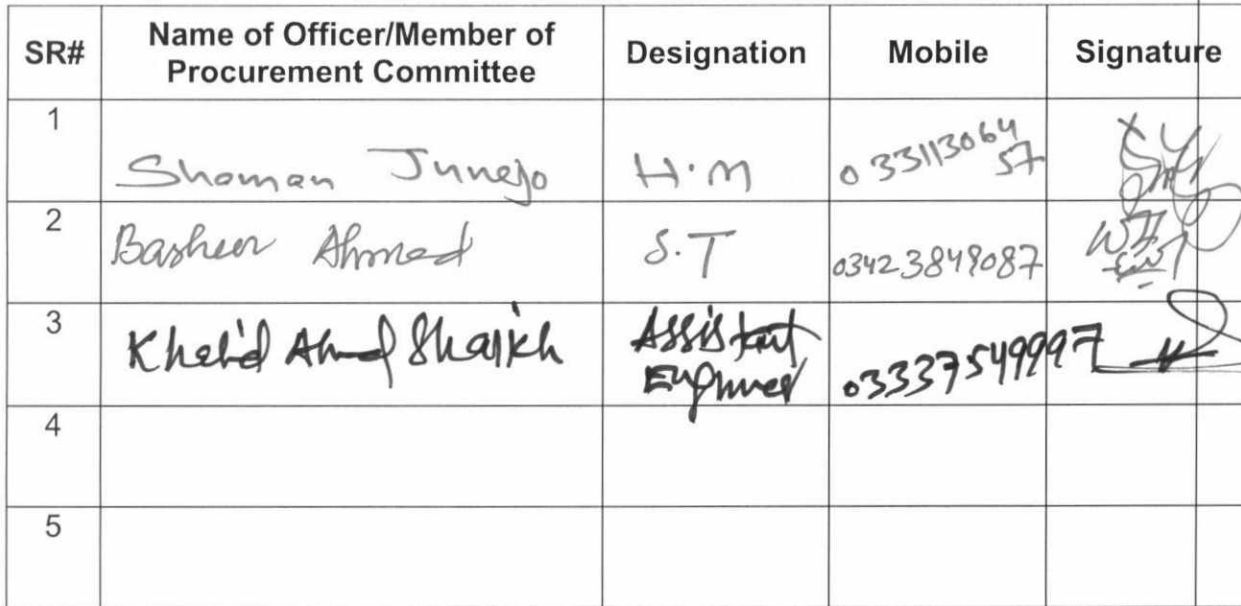 SR# Name of Officer/Member of Procurement Committee Designation Mobile Signature
1 Shaman Junejo H.M 03311306457
2 Basheer Ahmed S.T 03423849087
3 Khalid Ahmed Shaikh Assistant Engineer 03337549997
4
5